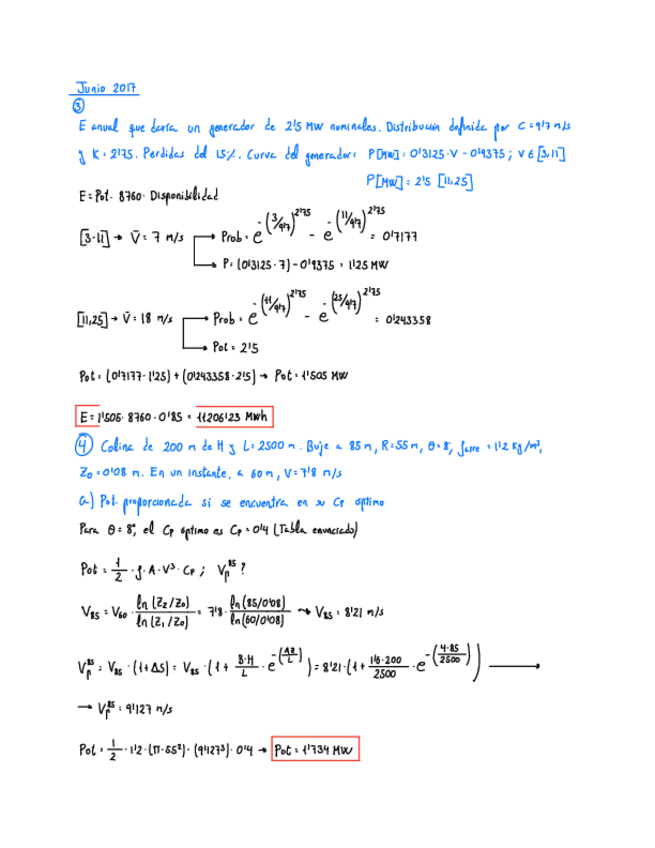 Junio 2017
③
E anual que daría un generador de 2'5 MW nominales. Distribución definida por C = 9'7 m/s
y K = 2'75. Perdidas del 15%. Curva del generador: P[MW] = 0'3125·V - 0'9375; V ∈ [3,11]
P[MW] = 2'5 [11,25]
E = Pot · 8760 · Disponibilidad
[3-11] → V̄ = 7 m/s → Prob = e^-(3/9'7)^2'75 - e^-(11/9'7)^2'75 = 0'7177
→ P = (0'3125·7) - 0'9375 = 1'25 MW
[11,25] → V̄ = 18 m/s → Prob = e^-(11/9'7)^2'75 - e^-(25/9'7)^2'75 = 0'243358
→ Pot = 2'5
Pot = (0'7177·1'25) + (0'243358·2'5) → Pot = 1'505 MW
E = 1'505 · 8760 · 0'85 = 11206'23 MWh
④ Colina de 200 m de H y L = 2500 m. Buje a 85 m, R = 55 m, θ = 8°, ρaire = 1'12 Kg/m³,
Z₀ = 0'08 m. En un instante, a 60 m, V = 7'8 m/s
a) Pot. proporcionada si se encuentra en su Cp óptimo
Para θ = 8°, el Cp óptimo es Cp = 0'4 (Tabla enunciado)
Pot = 1/2 · ρ · A · V³ · Cp ; Vp^85 ?
V85 = V60 · ln(Z2/Z0)/ln(Z1/Z0) = 7'8 · ln(85/0'08)/ln(60/0'08) → V85 = 8'21 m/s
Vp^85 = V85 · (1+ΔS) = V85 · (1 + B·H/L · e^-(AZ/L)) = 8'21 · (1 + 1'6·200/2500 · e^-(4·85/2500)) →
→ Vp^85 = 9'127 m/s
Pot = 1/2 · 1'2 · (π·55²) · (9'127³) · 0'4 → Pot = 1'734 MW